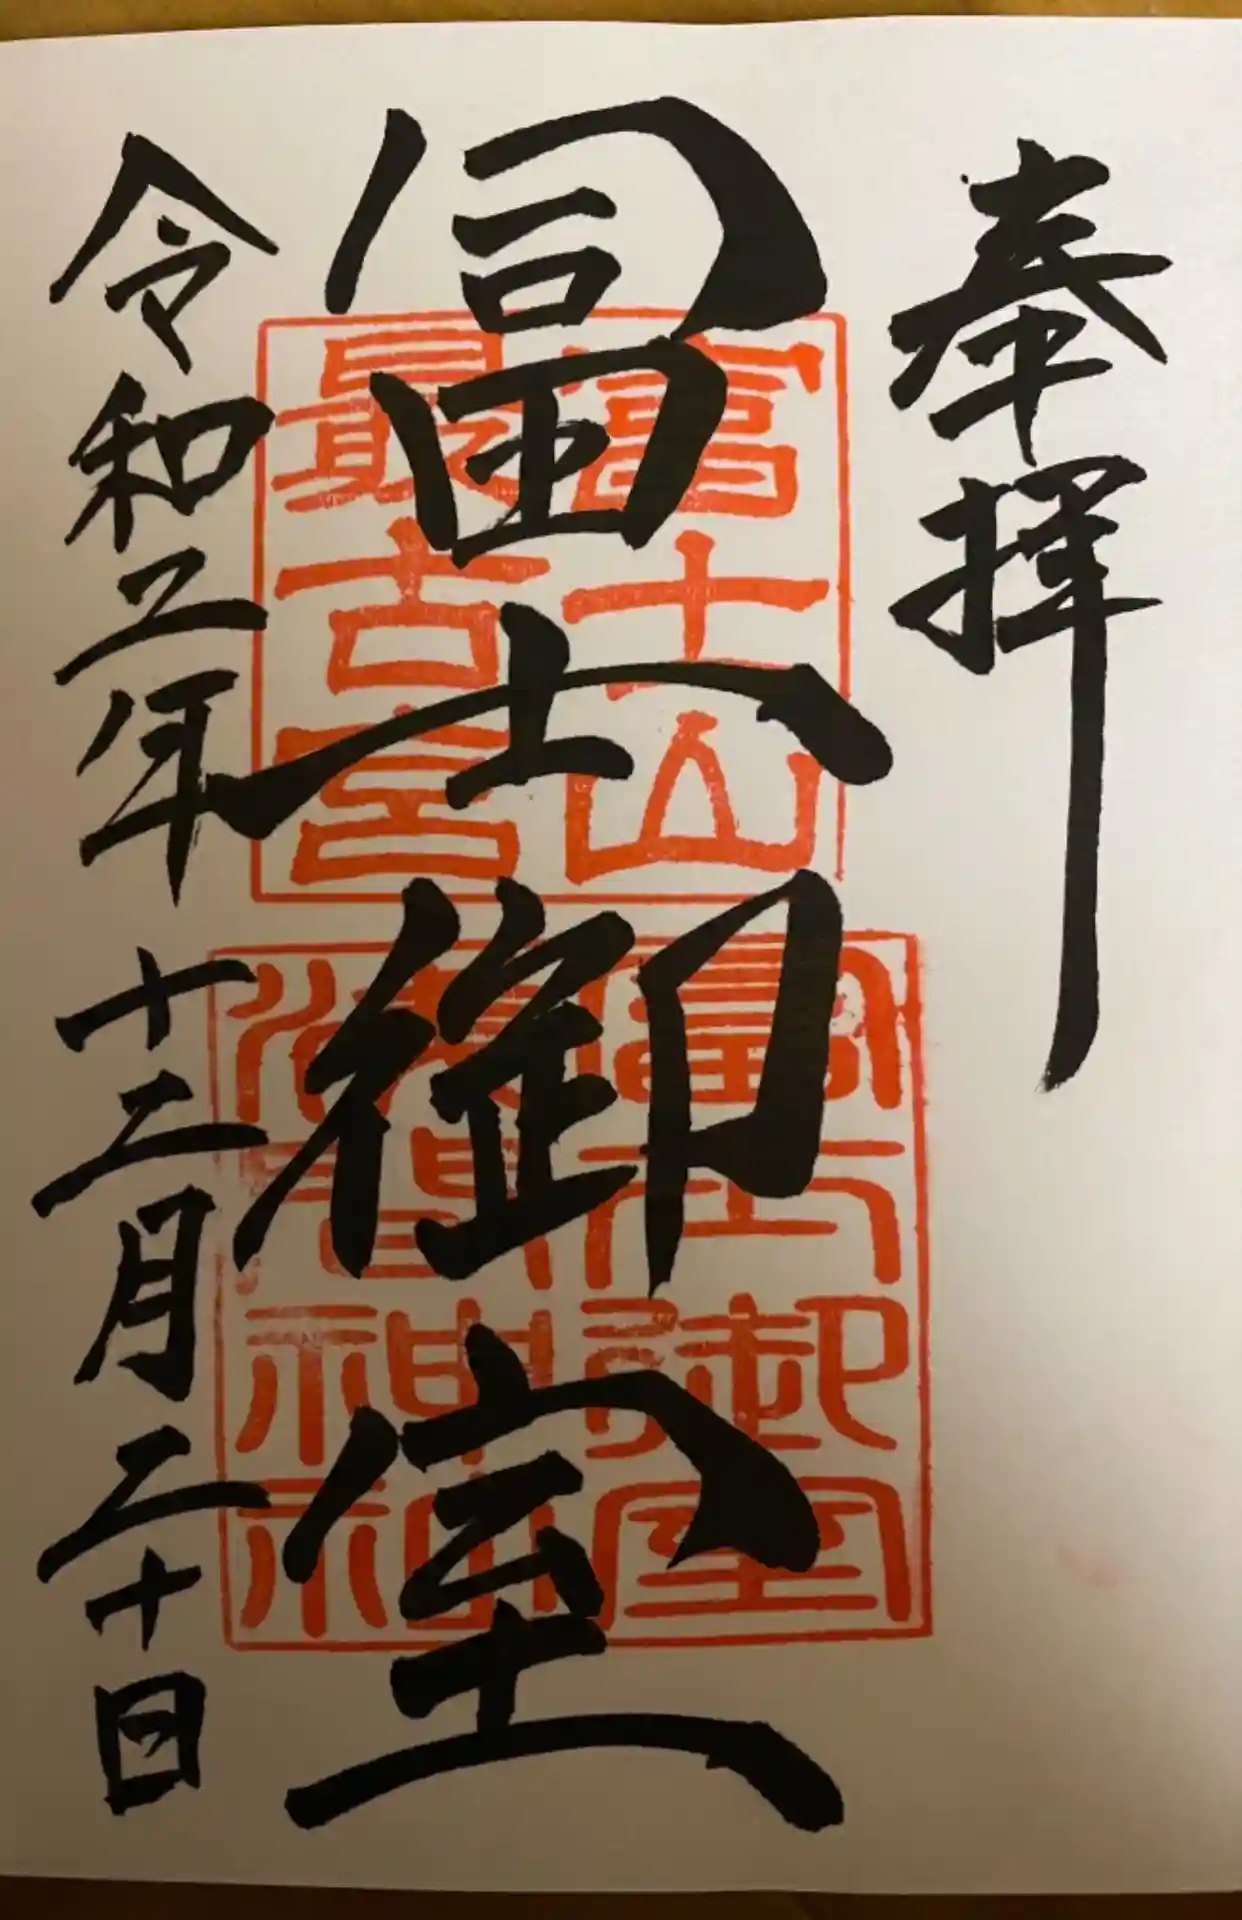 奉拝
冨士御室
富士山
最古宮
冨士御室
淺間神社
令和二年十二月二十日